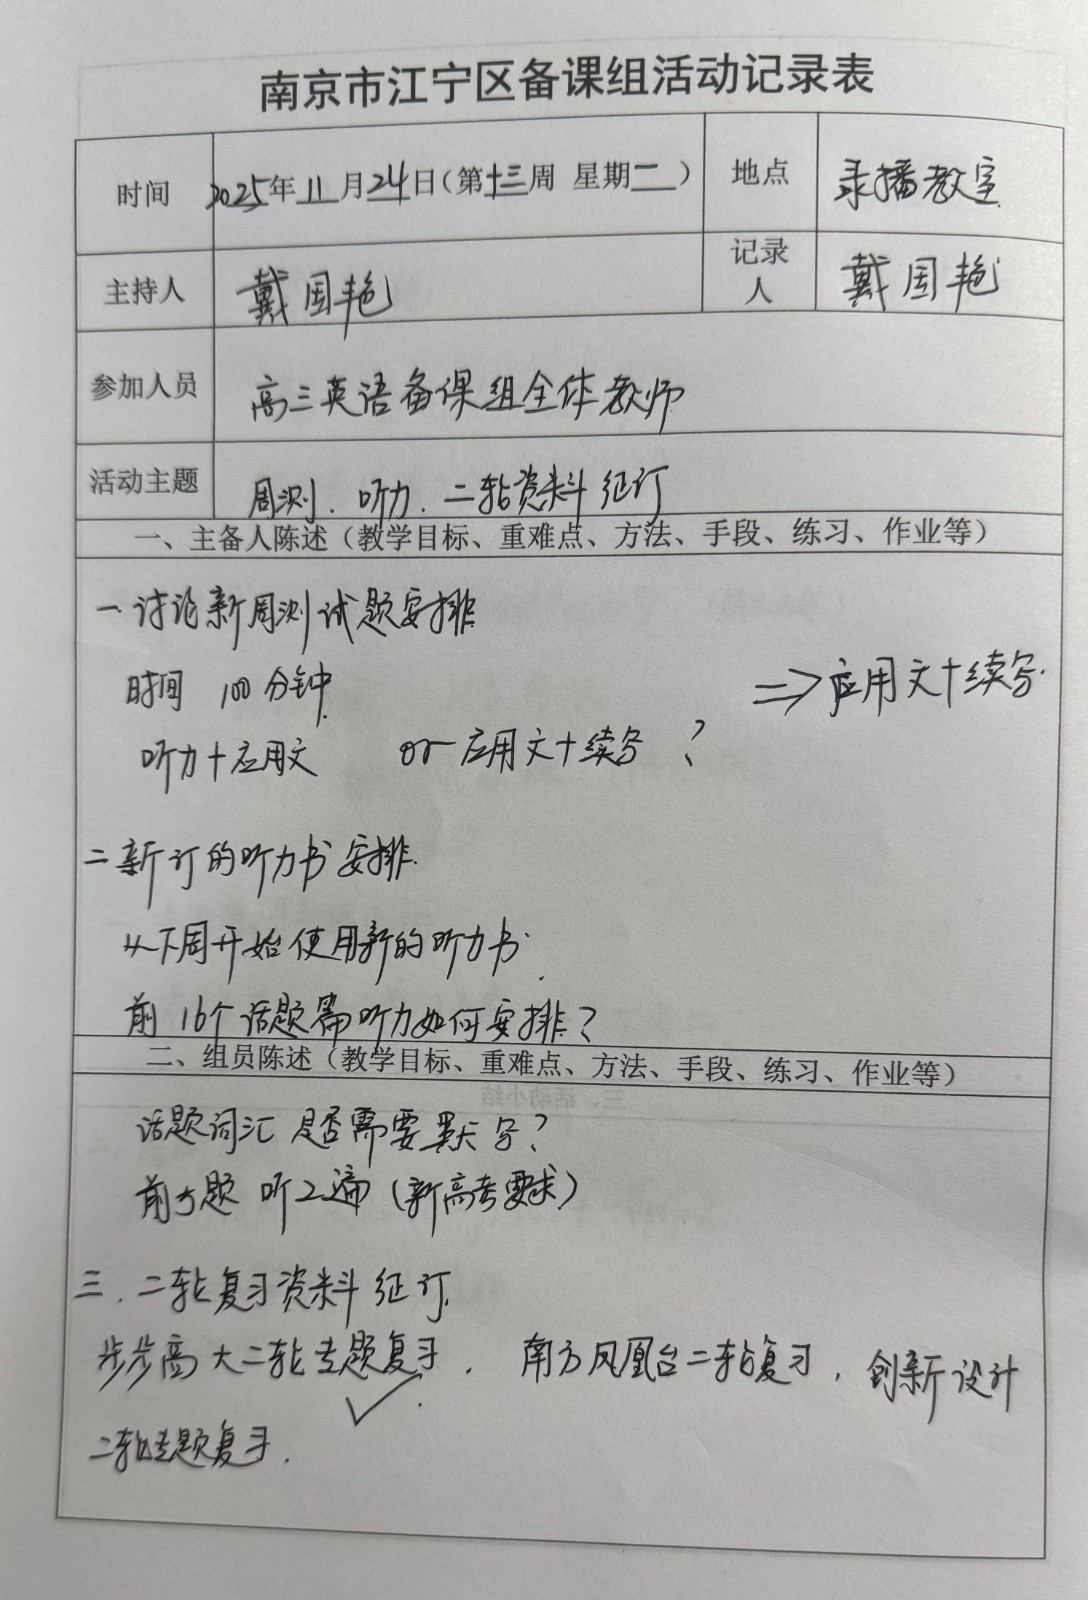 南京市江宁区备课组活动记录表
时间 2025年11月24日(第十三周 星期一) 地点 录播教室
主持人 戴国艳 记录人 戴国艳
参加人员 高三英语备课组全体教师
活动主题 周测、听力、二轮资料征订
一、主备人陈述（教学目标、重难点、方法、手段、练习、作业等）
一 讨论新周测试题安排
时间 100分钟 ⇒应用文+续写.
听力+应用文 or 应用文+续写 ?
二 新订的听力书安排.
从下周开始使用新的听力书.
前16个话题篇听力如何安排?
二、组员陈述（教学目标、重难点、方法、手段、练习、作业等）
话题词汇是否需要默写?
前5题 听2遍 (新高考要求)
三. 二轮复习资料征订.
步步高大二轮专题复习, 南方凤凰台二轮复习, 创新设计
✓
二轮专题复习.